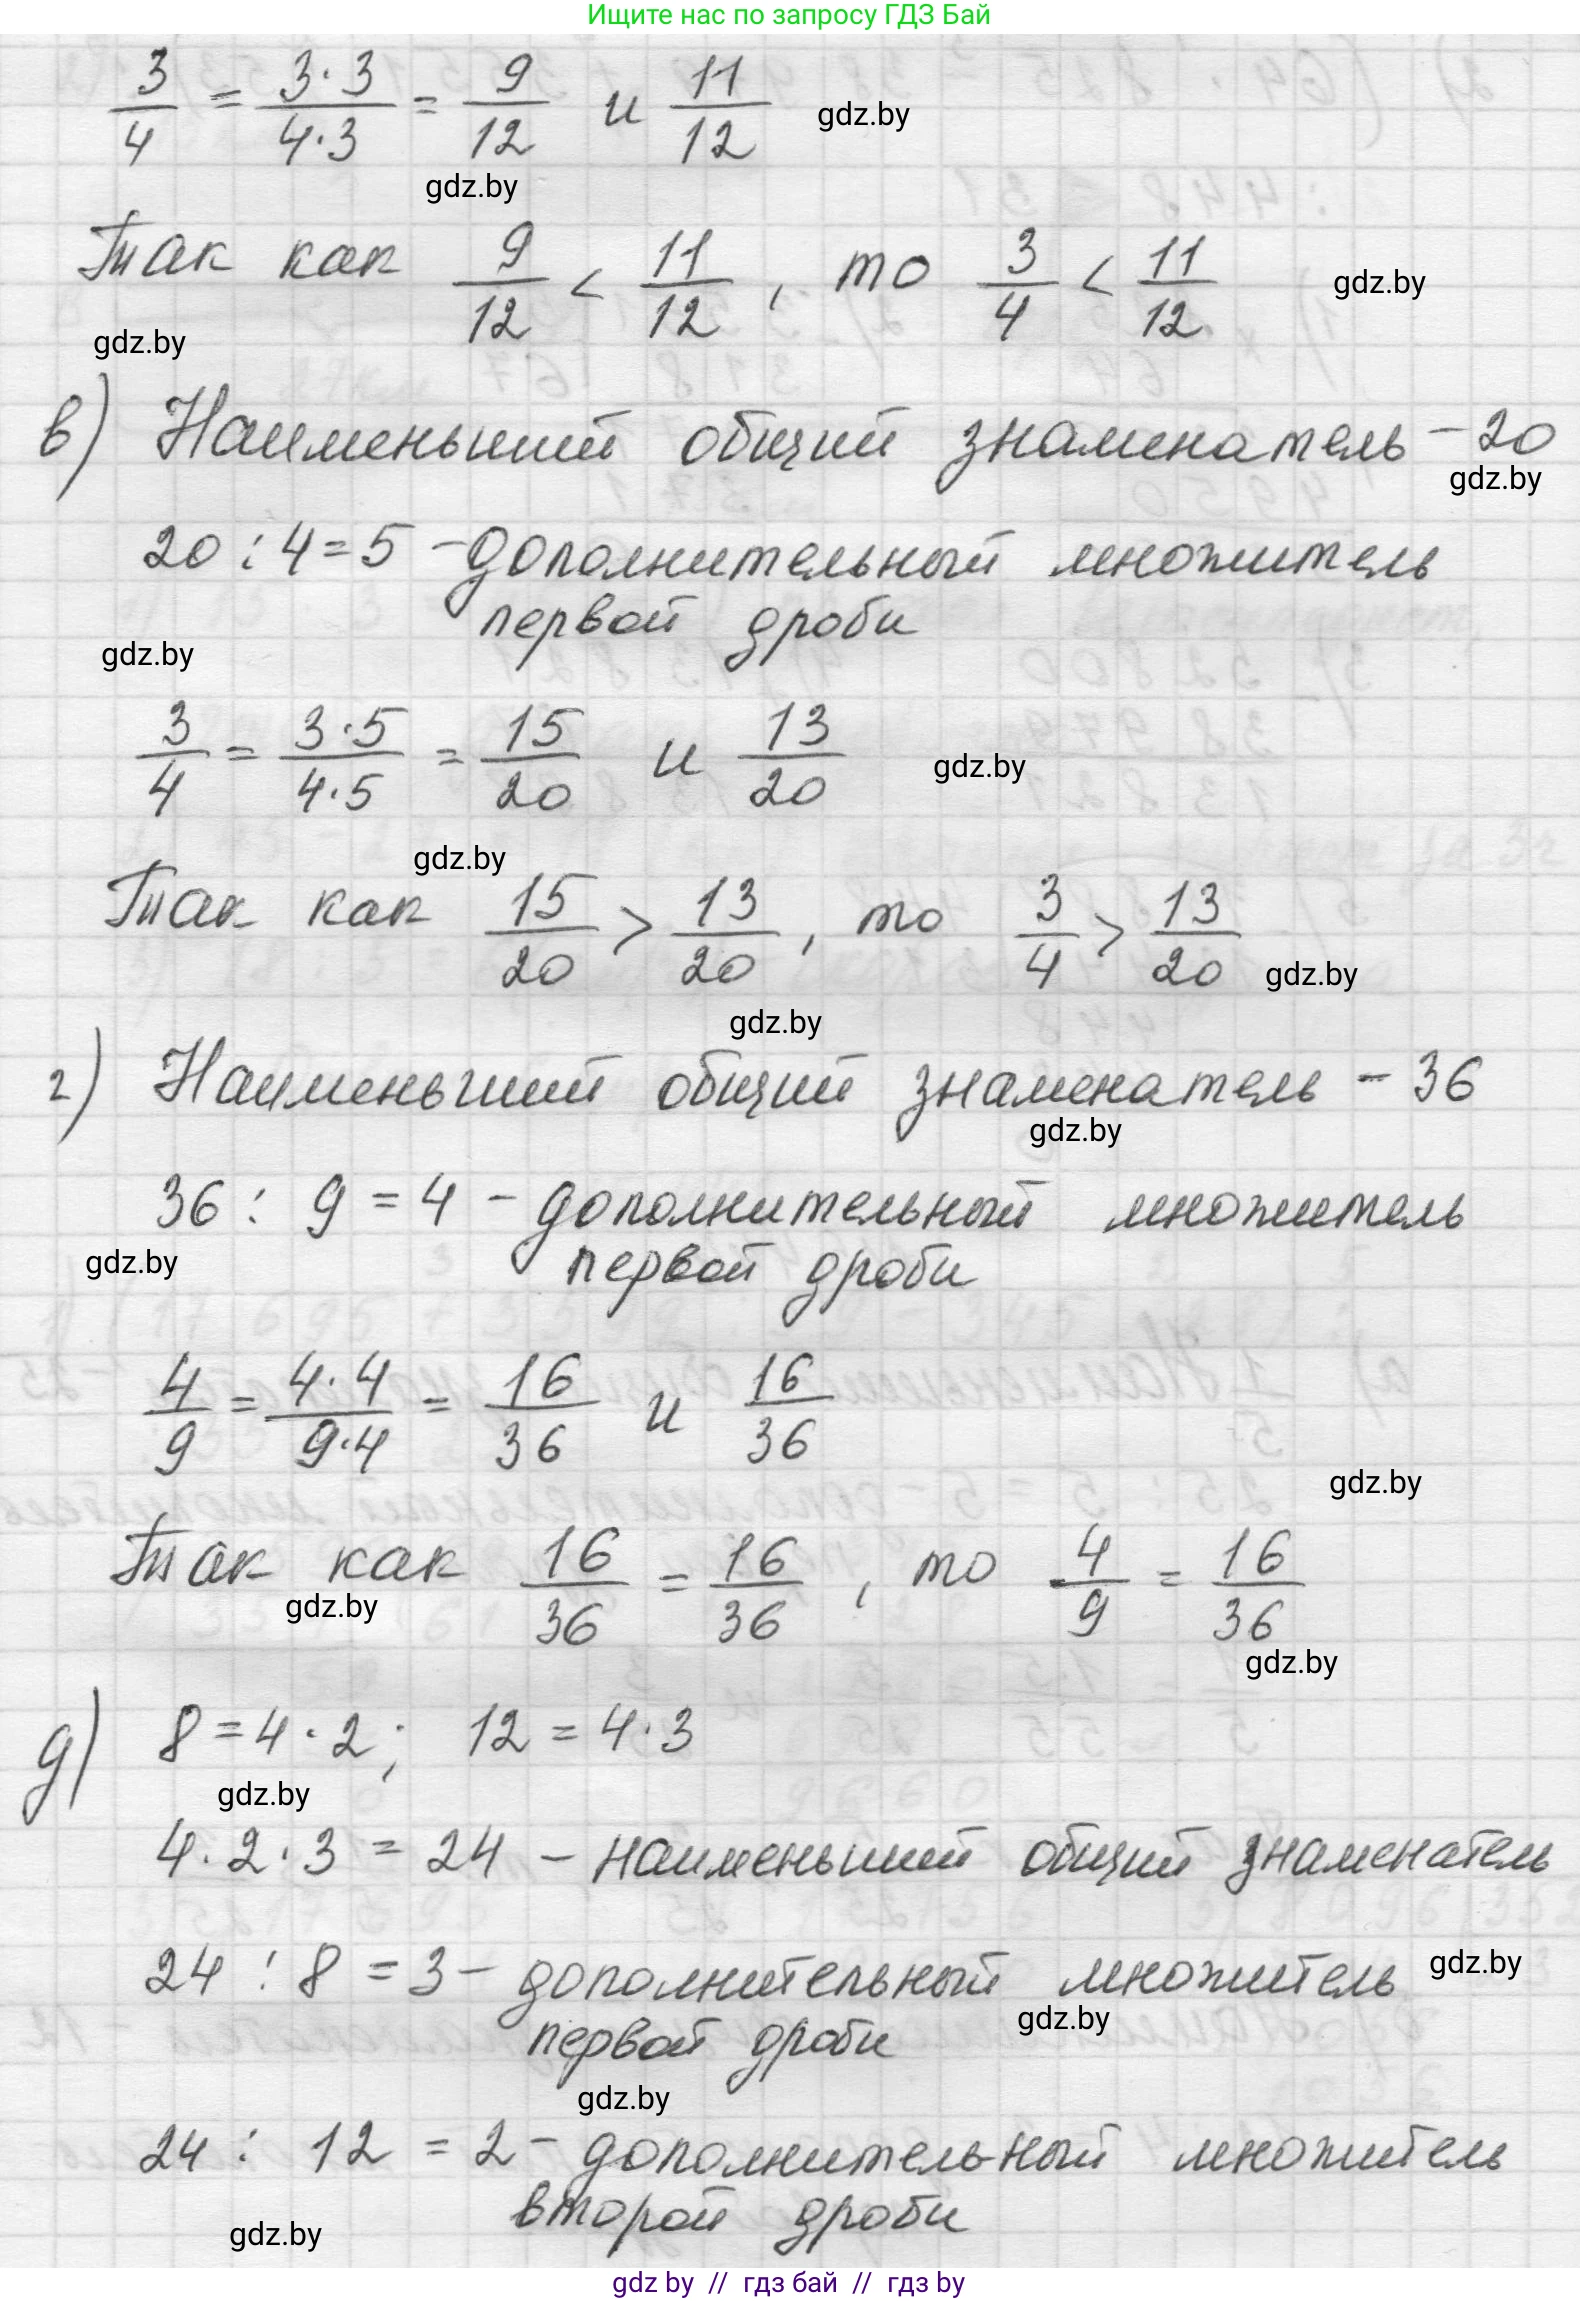 Ищите нас по запросу ГДЗ Бай
3/4 = 3·3/4·3 = 9/12 и 11/12 gdz.by
gdz.by
Так как 9/12 < 11/12, то 3/4 < 11/12 gdz.by
gdz.by
в) Наименьший общий знаменатель - 20
gdz.by
20 : 4 = 5 - дополнительный множитель
первой дроби
gdz.by
3/4 = 3·5/4·5 = 15/20 и 13/20 gdz.by
gdz.by
Так как 15/20 > 13/20, то 3/4 > 13/20 gdz.by
gdz.by
г) Наименьший общий знаменатель - 36
gdz.by
36 : 9 = 4 - дополнительный множитель
gdz.by первой дроби
4/9 = 4·4/9·4 = 16/36 и 16/36
gdz.by
Так как 16/36 = 16/36, то 4/9 = 16/36
gdz.by
gdz.by
д) 8 = 4 · 2; 12 = 4 · 3
gdz.by
4 · 2 · 3 = 24 - наименьший общий знаменатель
24 : 8 = 3 - дополнительный множитель gdz.by
первой дроби gdz.by
gdz.by
24 : 12 = 2 - дополнительный множитель
второй дроби
gdz.by
gdz by // гдз бай // гдз by